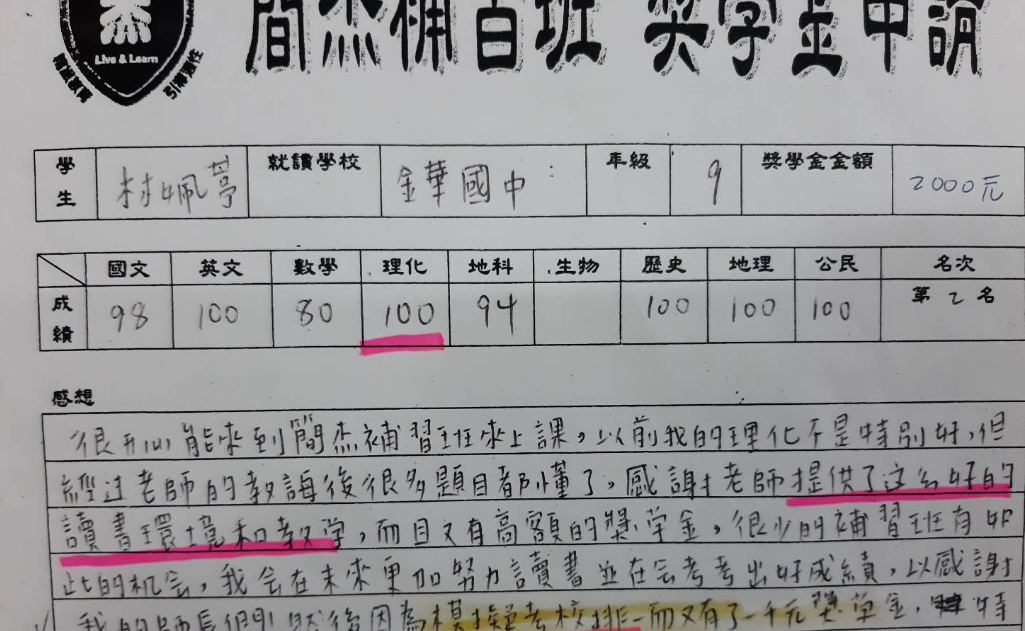 杰
Live & Learn
引導適性
簡杰補習班 獎學金申請
學生 林姵葶 就讀學校 金華國中 年級 9 獎學金金額 2000元
國文 英文 數學 理化 地科 生物 歷史 地理 公民 名次
成績 98 100 80 100 94 100 100 100 第 2 名
感想
很开心能來到簡杰補習班來上課,以前我的理化不是特別好,但
經过老師的教誨後很多題目都懂了,感謝老師提供了这么好的
讀書環境和教学,而且又有高額的獎学金,很少的補習班有如
此的机会,我会在未來更加努力讀書並在会考考出好成績,以感謝
我的師長們!然後因為模擬考校排一而又有了一千元獎学金,特